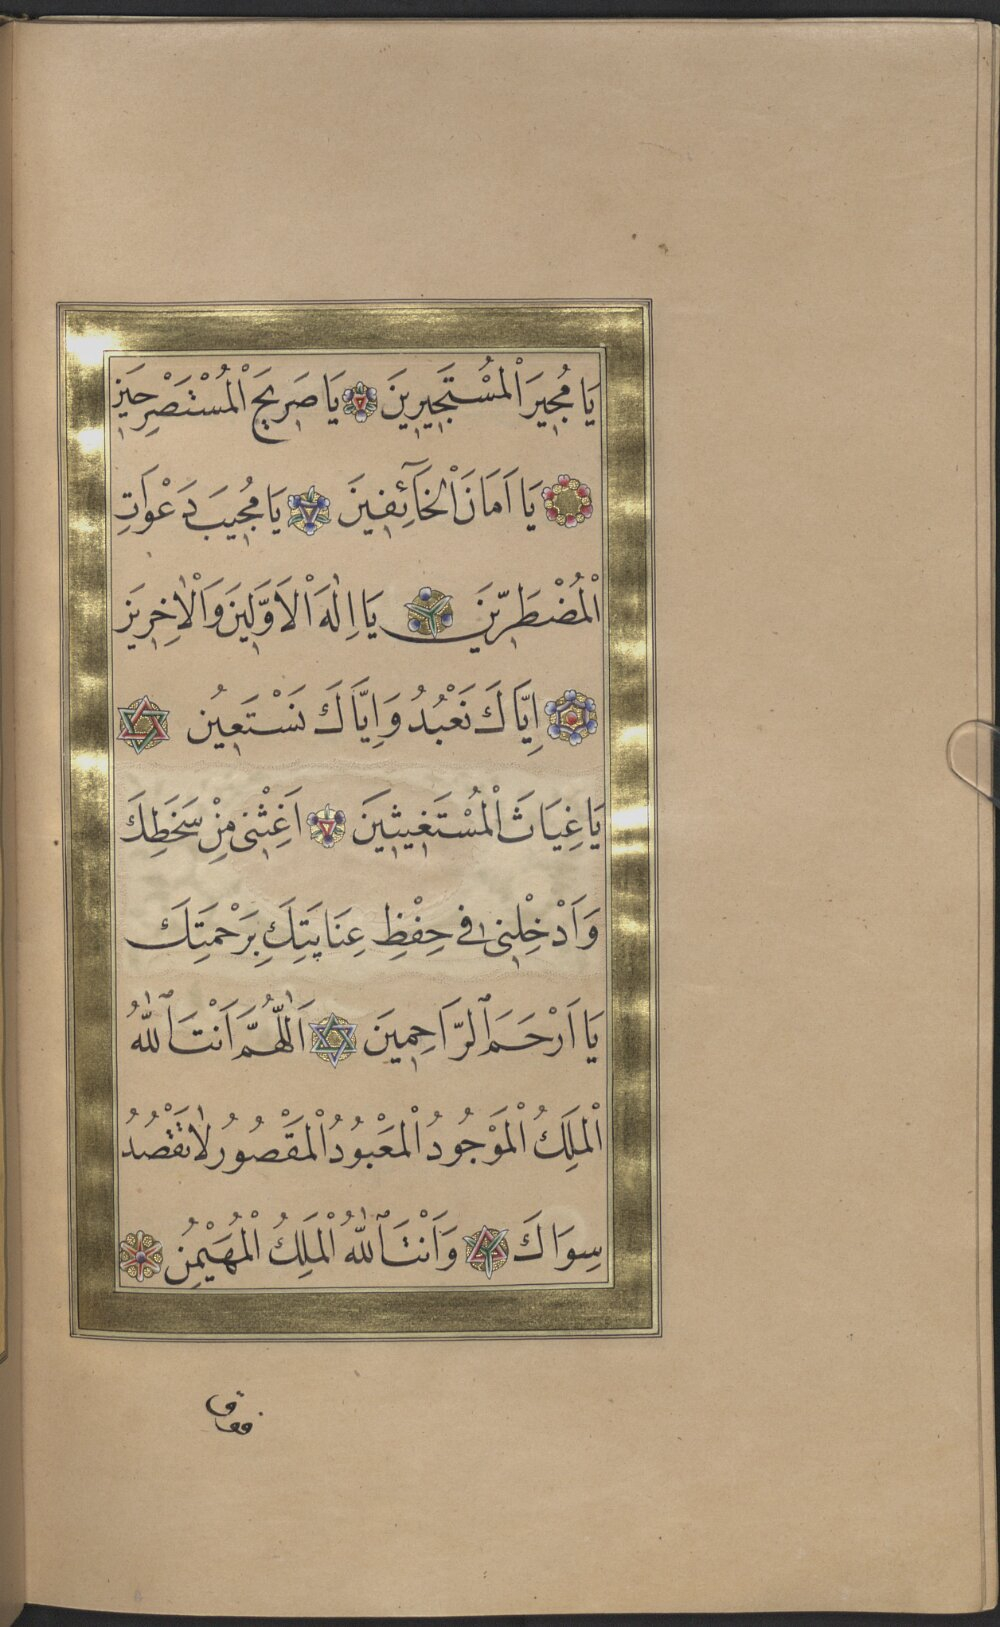 يَا مُجِيرَ الْمُسْتَجِيرِينَ يَا صَرِيخَ الْمُسْتَصْرِخِينَ
يَا اَمَانَ الْخَآئِفِينَ يَا مُجِيبَ دَعْوَاتِ
الْمُضْطَرِّينَ يَا اِلٰهَ الْاَوَّلِينَ وَالْاٰخِرِينَ
اِيَّاكَ نَعْبُدُ وَاِيَّاكَ نَسْتَعِينُ
يَا غِيَاثَ الْمُسْتَغِيثِينَ اَغِثْنِى مِنْ سَخَطِكَ
وَاَدْخِلْنِى فِى حِفْظِ عِنَايَتِكَ بِرَحْمَتِكَ
يَا اَرْحَمَ الرَّاحِمِينَ اَللّٰهُمَّ اَنْتَ اللّٰهُ
الْمَلِكُ الْمَوْجُودُ الْمَعْبُودُ الْمَقْصُودُ لَا نَقْصُدُ
سِوَاكَ وَاَنْتَ اللّٰهُ الْمَلِكُ الْمُهَيْمِنُ